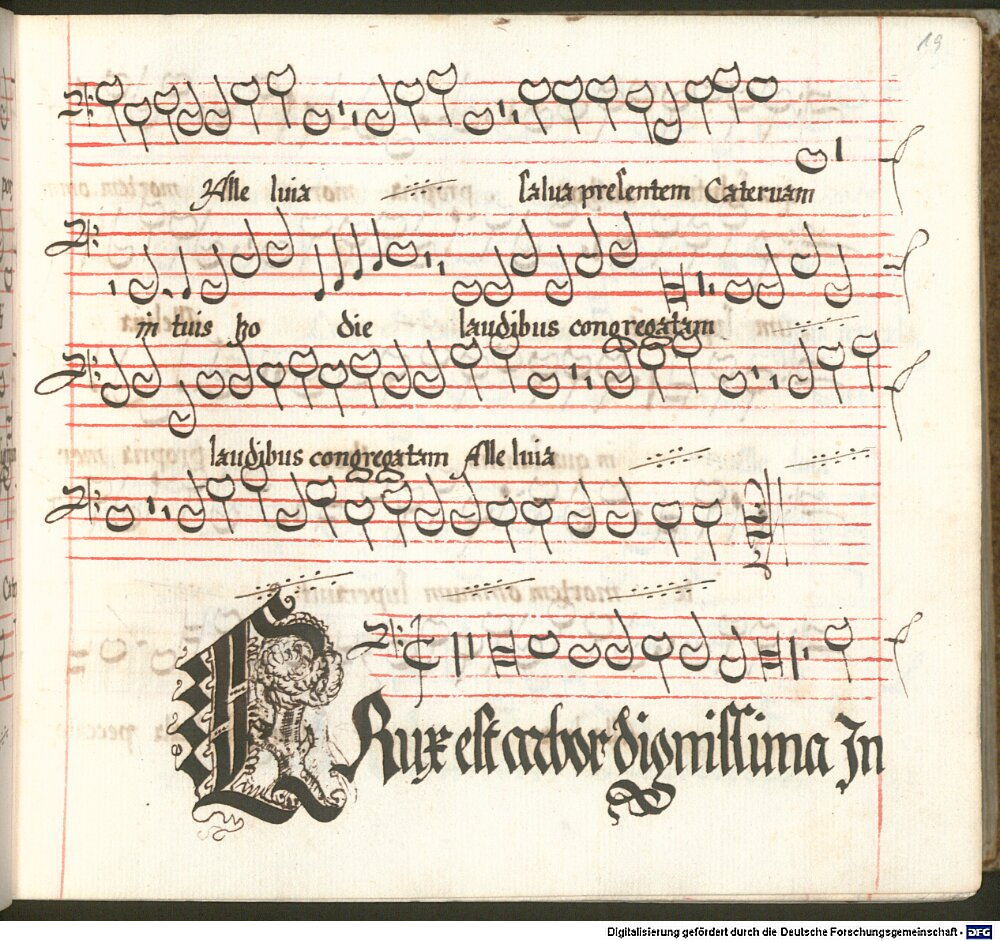 19
Alle luia salua presentem Cateruam
in tuis ho die laudibus congregatam
laudibus congregatam Alle luia
CRux est arbor dignissima In
Digitalisierung gefördert durch die Deutsche Forschungsgemeinschaft - DFG